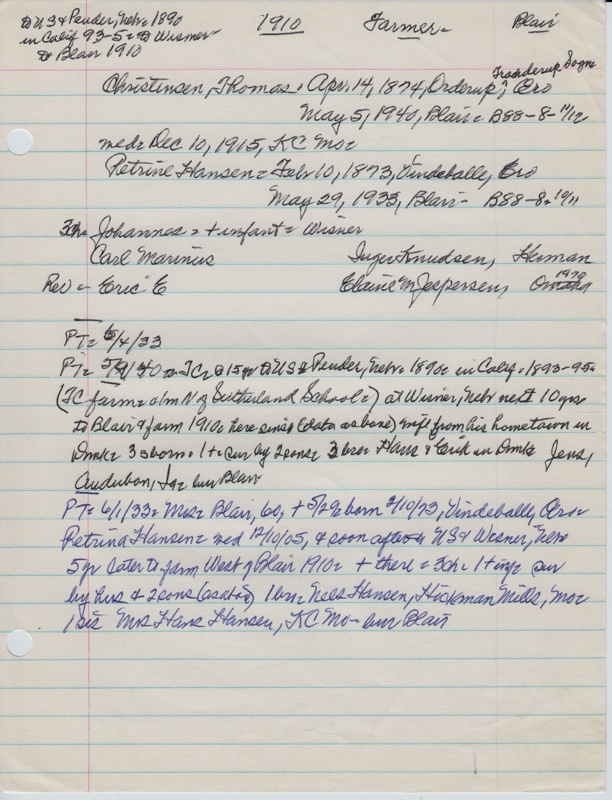 to US & Pender, Nebr. 1890 1910 Farmer= Blair
in Calif 93-5= to Wisner
to Blair 1910
Tranderup Sogn
Christensen, Thomas. Apr. 14, 1874, Orderup, Ero
May 5, 1940, Blair= B88-8-11/12
med= Dec 10, 1915, KC Mo=
Petrine Hansen= Feb 10, 1873, Vindeballe, Ero
May 29, 1933, Blair- B88-8= 10/11
3ch= Johannes= + infant= Wisner
Carl Marinus Inger Knudsen, Herman
Rev= Eric E Elaine M Jespersen, Omaha 1970
PT= 6/4/33
PT= 5/9/40= TC= @ 15 yr to US & Pender, Nebr= 1890= in Calif= 1893-95=
(TC farm= N of Sutherland School=) at Wisner, Nebr next 10 yrs
to Blair & farm 1910= here since (data as bove) wife from his hometown in
Dmk= 3 sborn= 1+= sur by 2 sons= 3 bro= Hans & Erik in Dmk= Jens,
Audubon, Ia= bur Blair
PT= 6/1/33= Mrs= Blair, 60, + 5/29= born 2/10/73, Vindeballe, Aro=
Petrina Hansen= med 12/10/05, & soon after= US & Wisner, Nebr
5 yr later to farm West of Blair 1910= + there= 3ch= 1+inf= sur
by hus & 2 sons (as did) 1 bro= Nels Hansen, Hickman Mills, Mo=
1 sis Mrs Hans Hansen, KC Mo- bur Blair